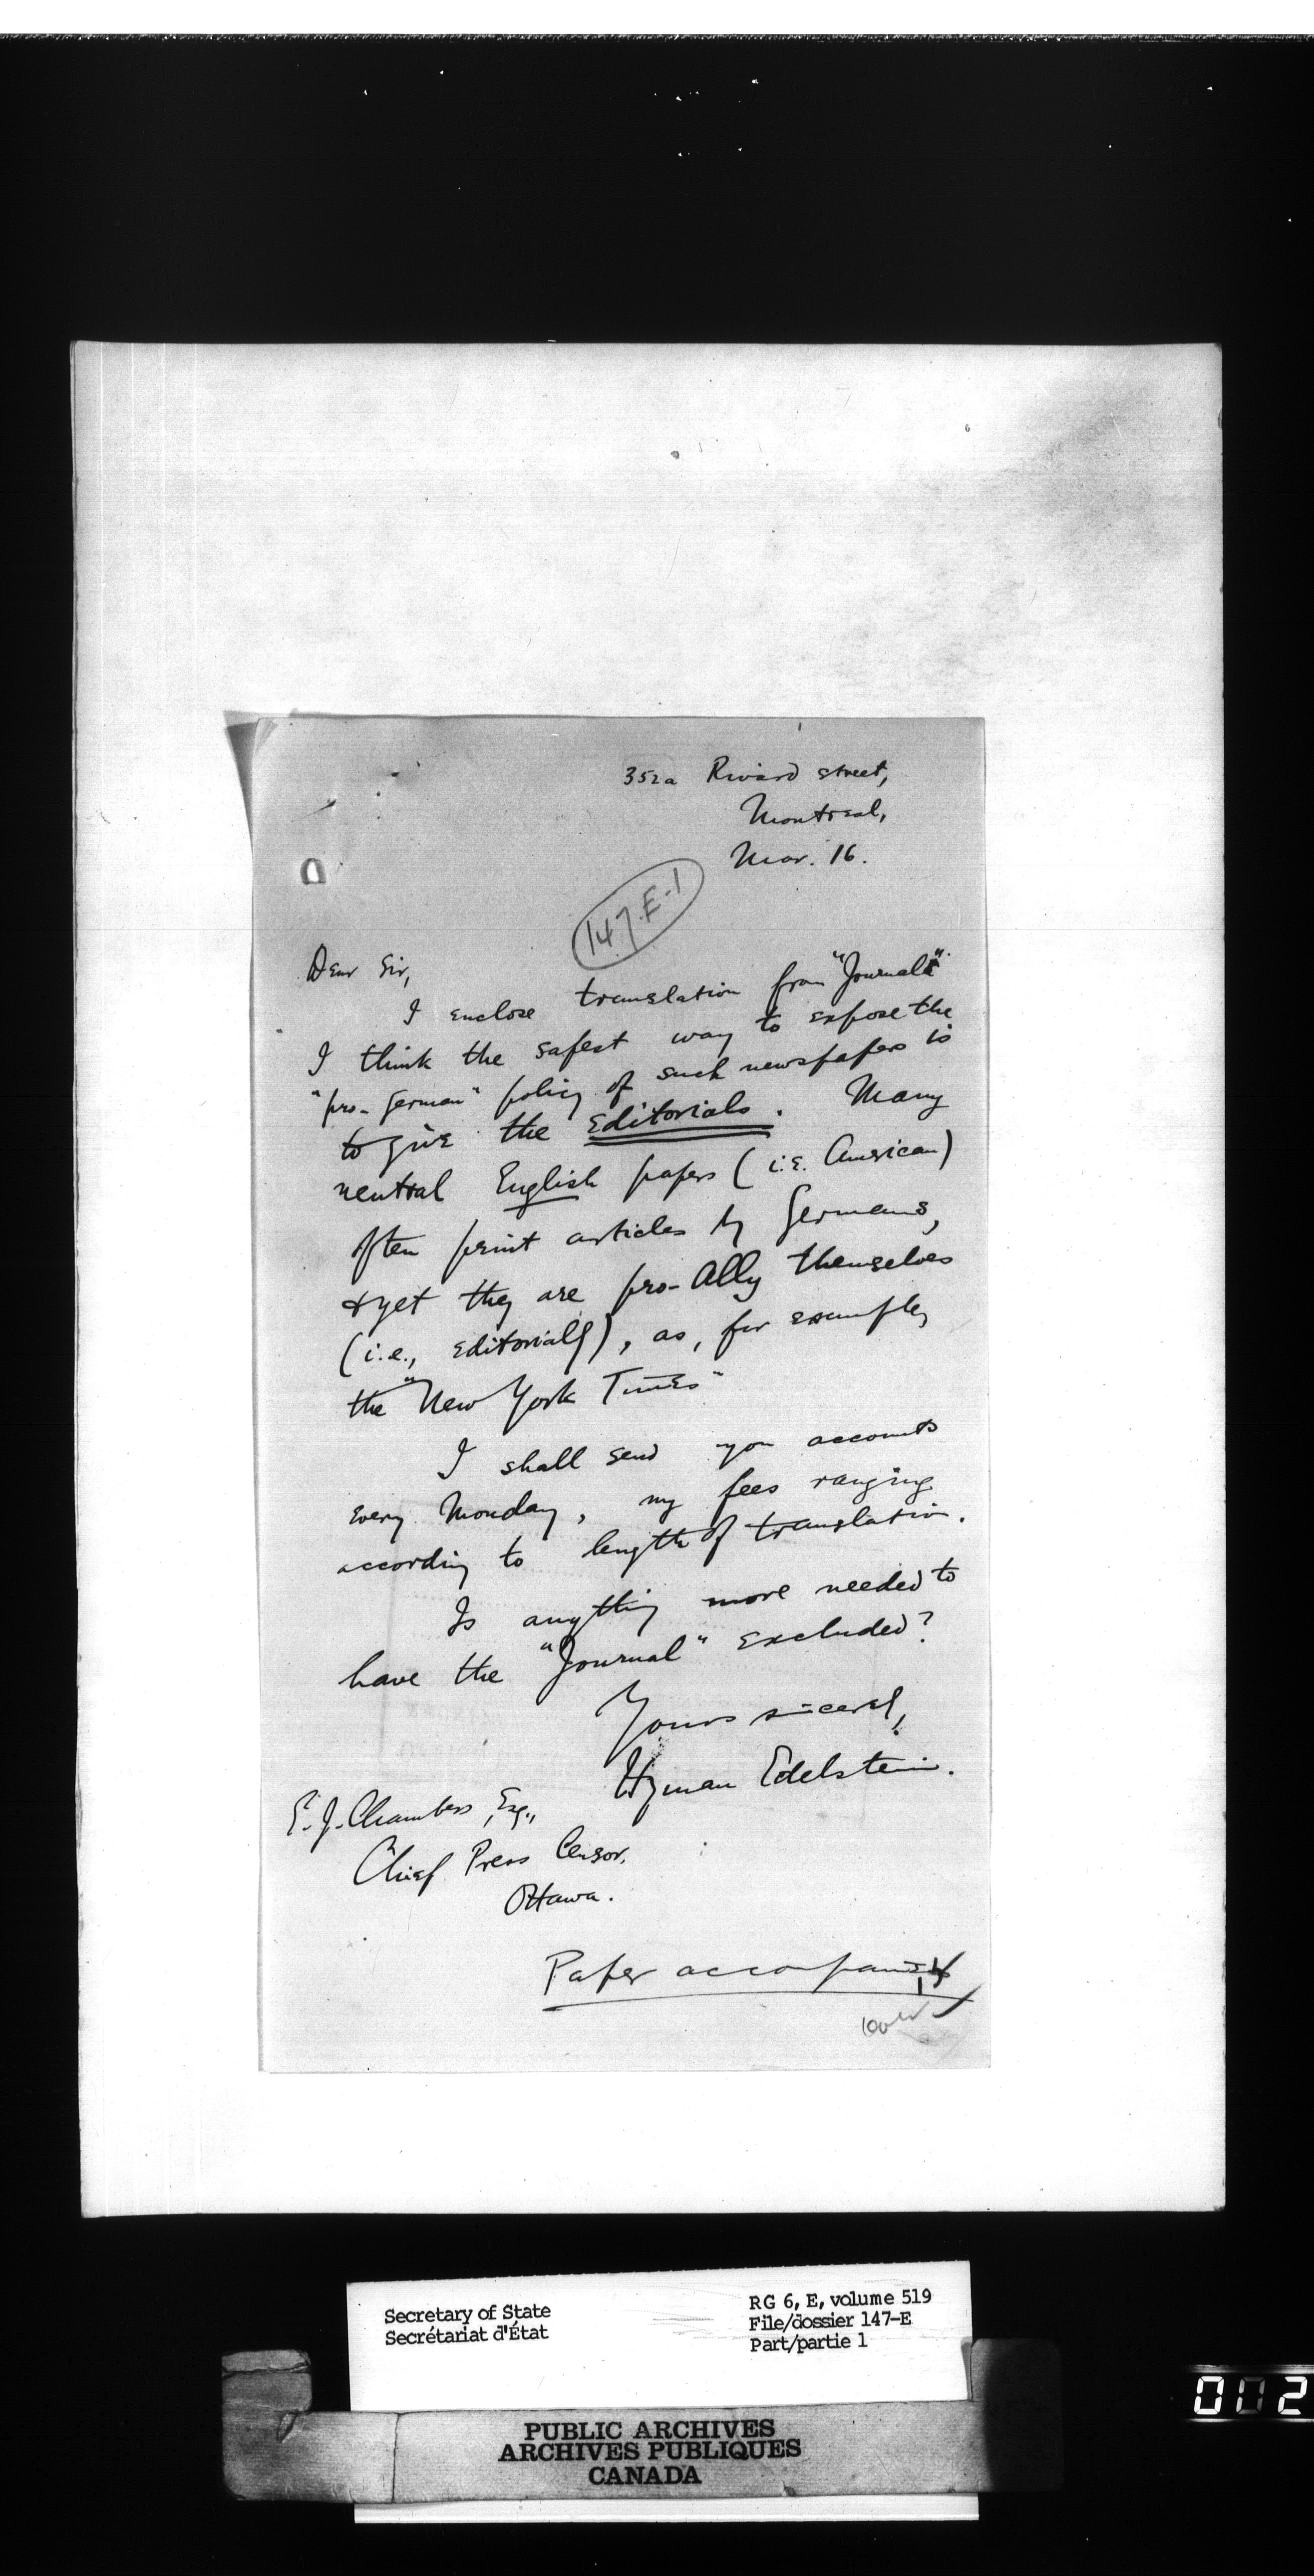 352a Rivard street,
Montreal,
Mar. 16.
147-E-1
Dear Sir,
I enclose translation from "Journal".
I think the safest way to expose the
"pro-German" policy of such newspapers is
to give the Editorials. Many
neutral English papers (i.e. American)
often print articles by Germans,
& yet they are pro-Ally themselves
(i.e., editorially), as, for example,
the "New York Times"
I shall send you accounts
every Monday, my fees ranging
according to length of translation.
Is anything more needed to
have the "Journal" excluded?
Yours sincerely,
Hyman Edelstein.
E. J. Chambers, Esq.,
Chief Press Censor,
Ottawa.
Paper accompanies
Secretary of State
Secrétariat d'État
RG 6, E, volume 519
File/dossier 147-E
Part/partie 1
002
PUBLIC ARCHIVES
ARCHIVES PUBLIQUES
CANADA